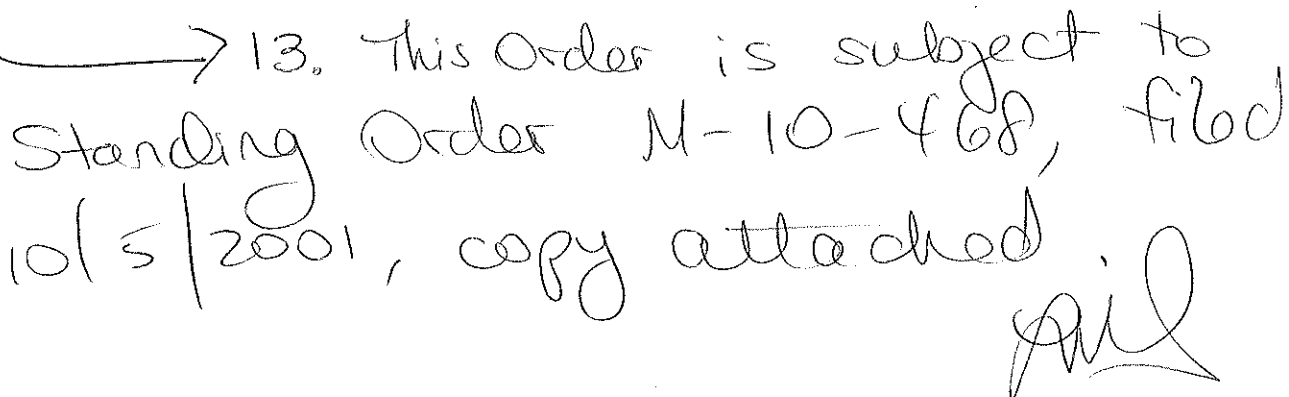 → 13. This Order is subject to
Standing Order M-10-468, filed
10/5/2001, copy attached